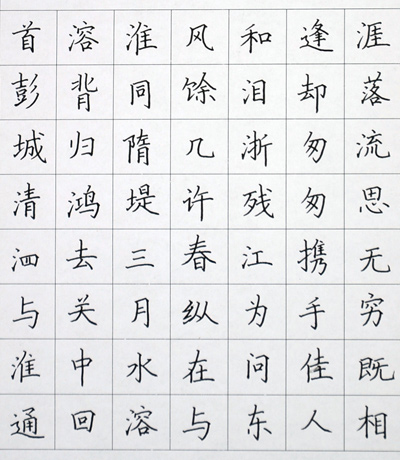 涯落流思无穷既相
逢却匆匆携手佳人
和泪浙残江为问东
风馀几许春纵在与
淮同隋堤三月水溶
溶背归鸿去关中回
首彭城清泗与淮通